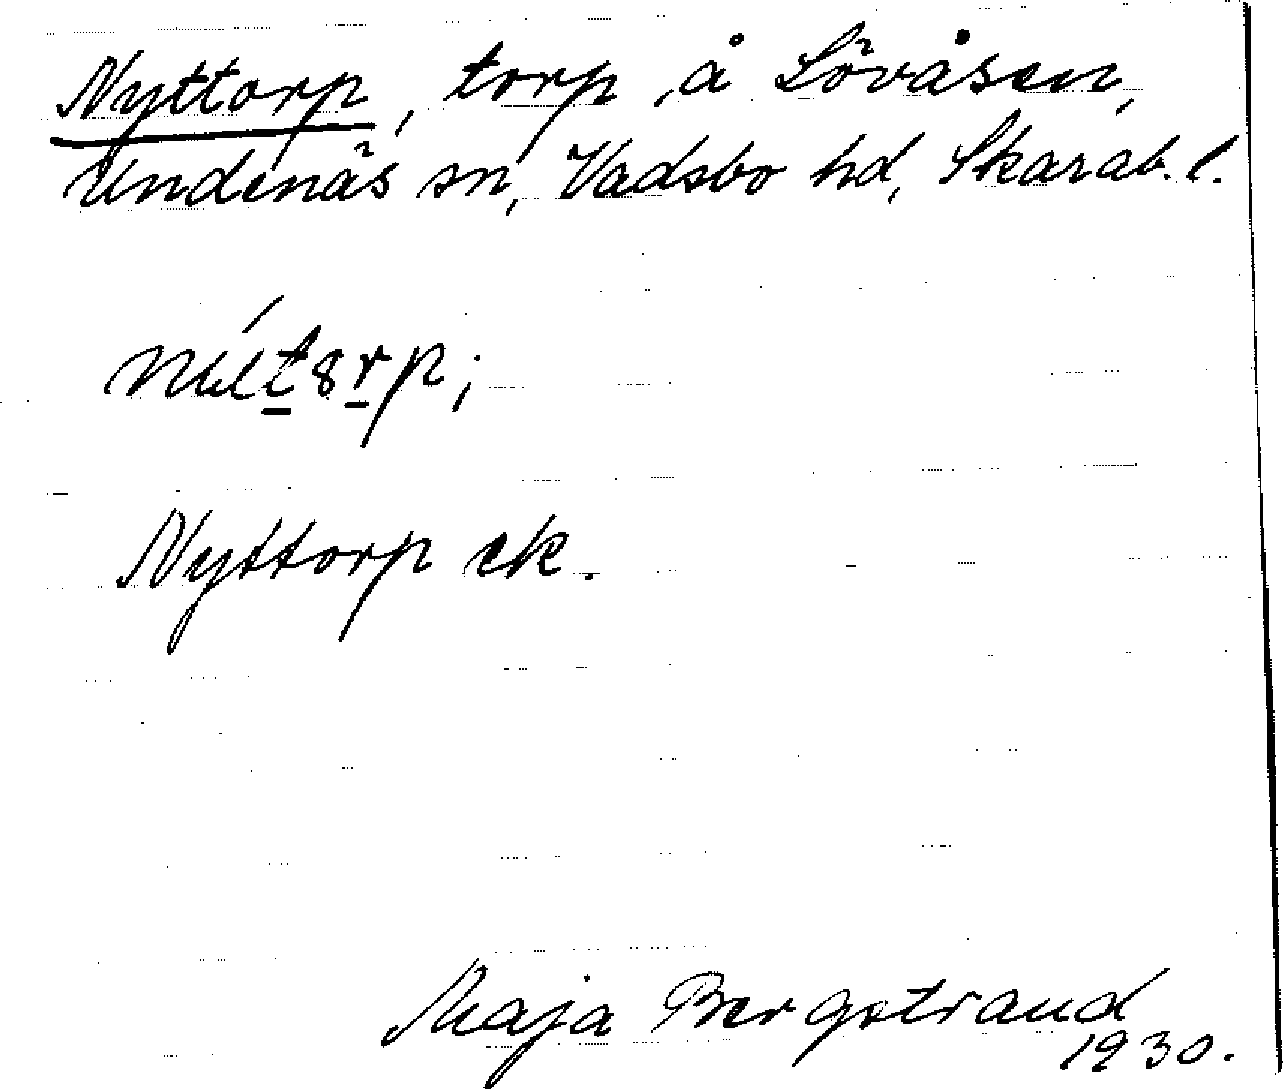 Nyttorp, torp å Lövåsen,
Undenäs sn, Vadsbo hd, Skarab. l.
Nyttorp ek.
Maja Bergstrand
1930.